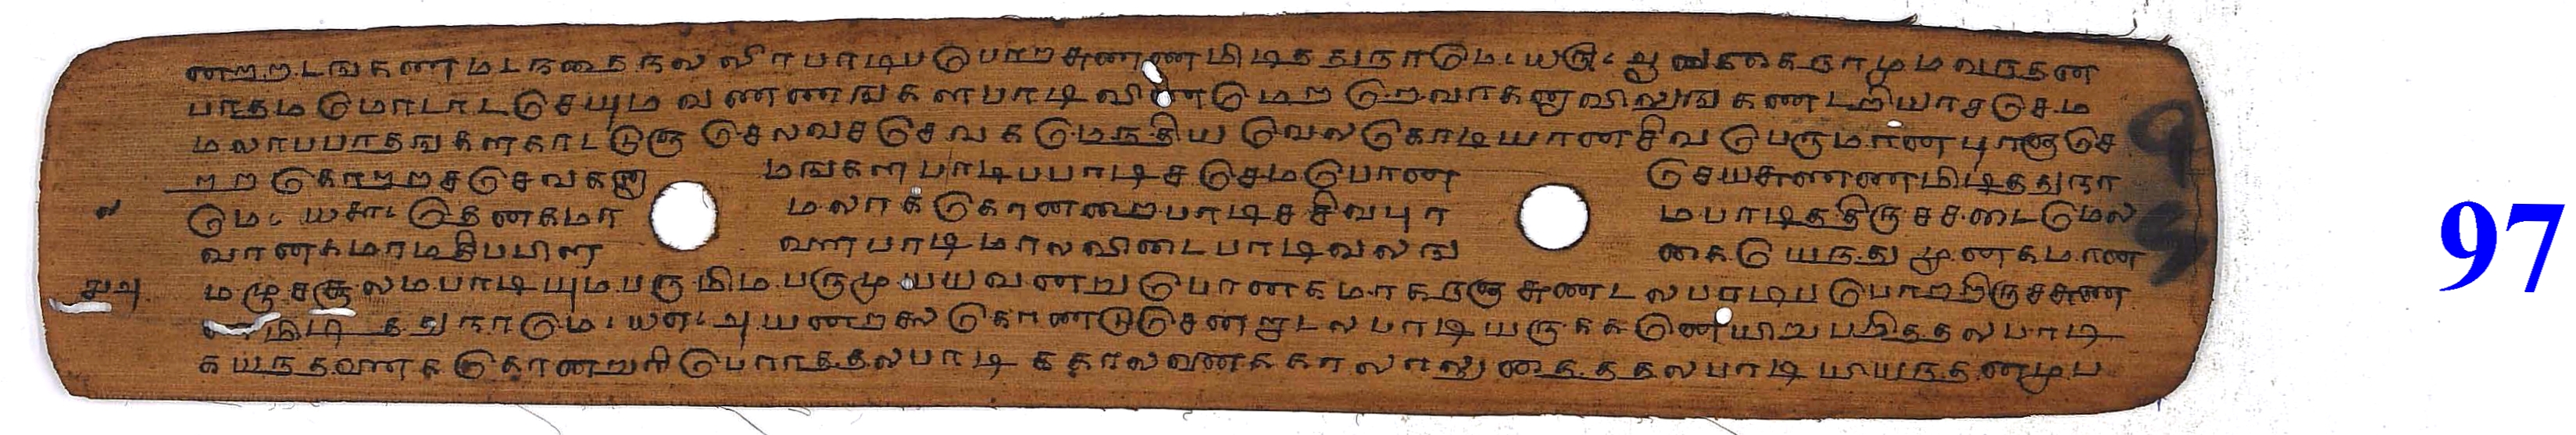 னறற டஙகண மடநகை நலலீர பாடிப பொறசுணண மிடிதது நாமெ யரு ஆவகை நாமும வநதன
பாதம மொடாடசெயும வணணஙகள பாடி விணமெற றெவாகனாவிலுங கணடறியாச செம
மலாபபாதஙகள காடடுஞ செலவச செவகமெநதிய வெல கொடியான சிவபெருமான புரஞசெ
றற கொறறச செவகனா மஙகள பாடிபபாடிச செமபொன செயசுணணமிடிதது நா
மெ யசு தெனகமா மலாக கொனறை பாடிச சிவபுர மபாடித திருசசடைமெல
வானகமாமதிபபிளளை பாடி மாலவிடை பாடி வலங கையெநது மூனகமான
மழுச சூலம பாடி யுமபரு மிமபருமுயய வனறு பொனகமாக நஞசுணடல பாடிப பொறறிருசசுண
ண மிடிதது நாமெ யஎ அயனறலை கொணடு செனறாடல பாடி யருககனெயிறு பறிததல பாடி
கயநதனைக கொனறுரி பொாததல பாடிக காலனைக காலாலுதைததல பாடி யியநதன முப
97